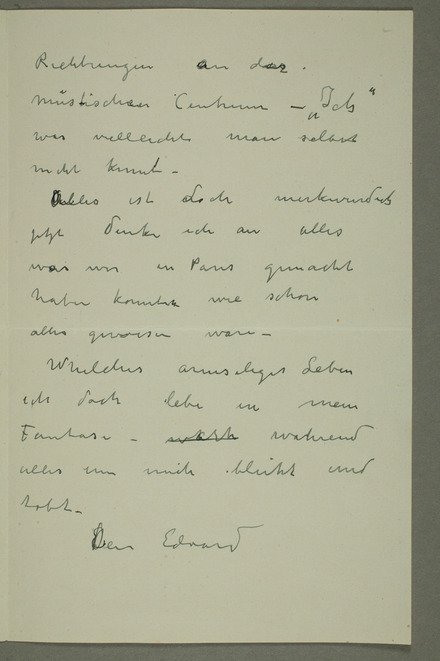 Richtungen an das
müstischen Centrum – „Ich“
was vielleicht man selbst
nicht kennt –
Alles ist doch merkwürdich
jetzt denke ich an alles
was wir in Paris gemacht
haben konnten wie schön
alles gewesen ware –
Whelches armseliges Leben
ich doch lebe in mein
Fantasi – wahrend
alles um mich blüht und
tobt –
Dein Edvard